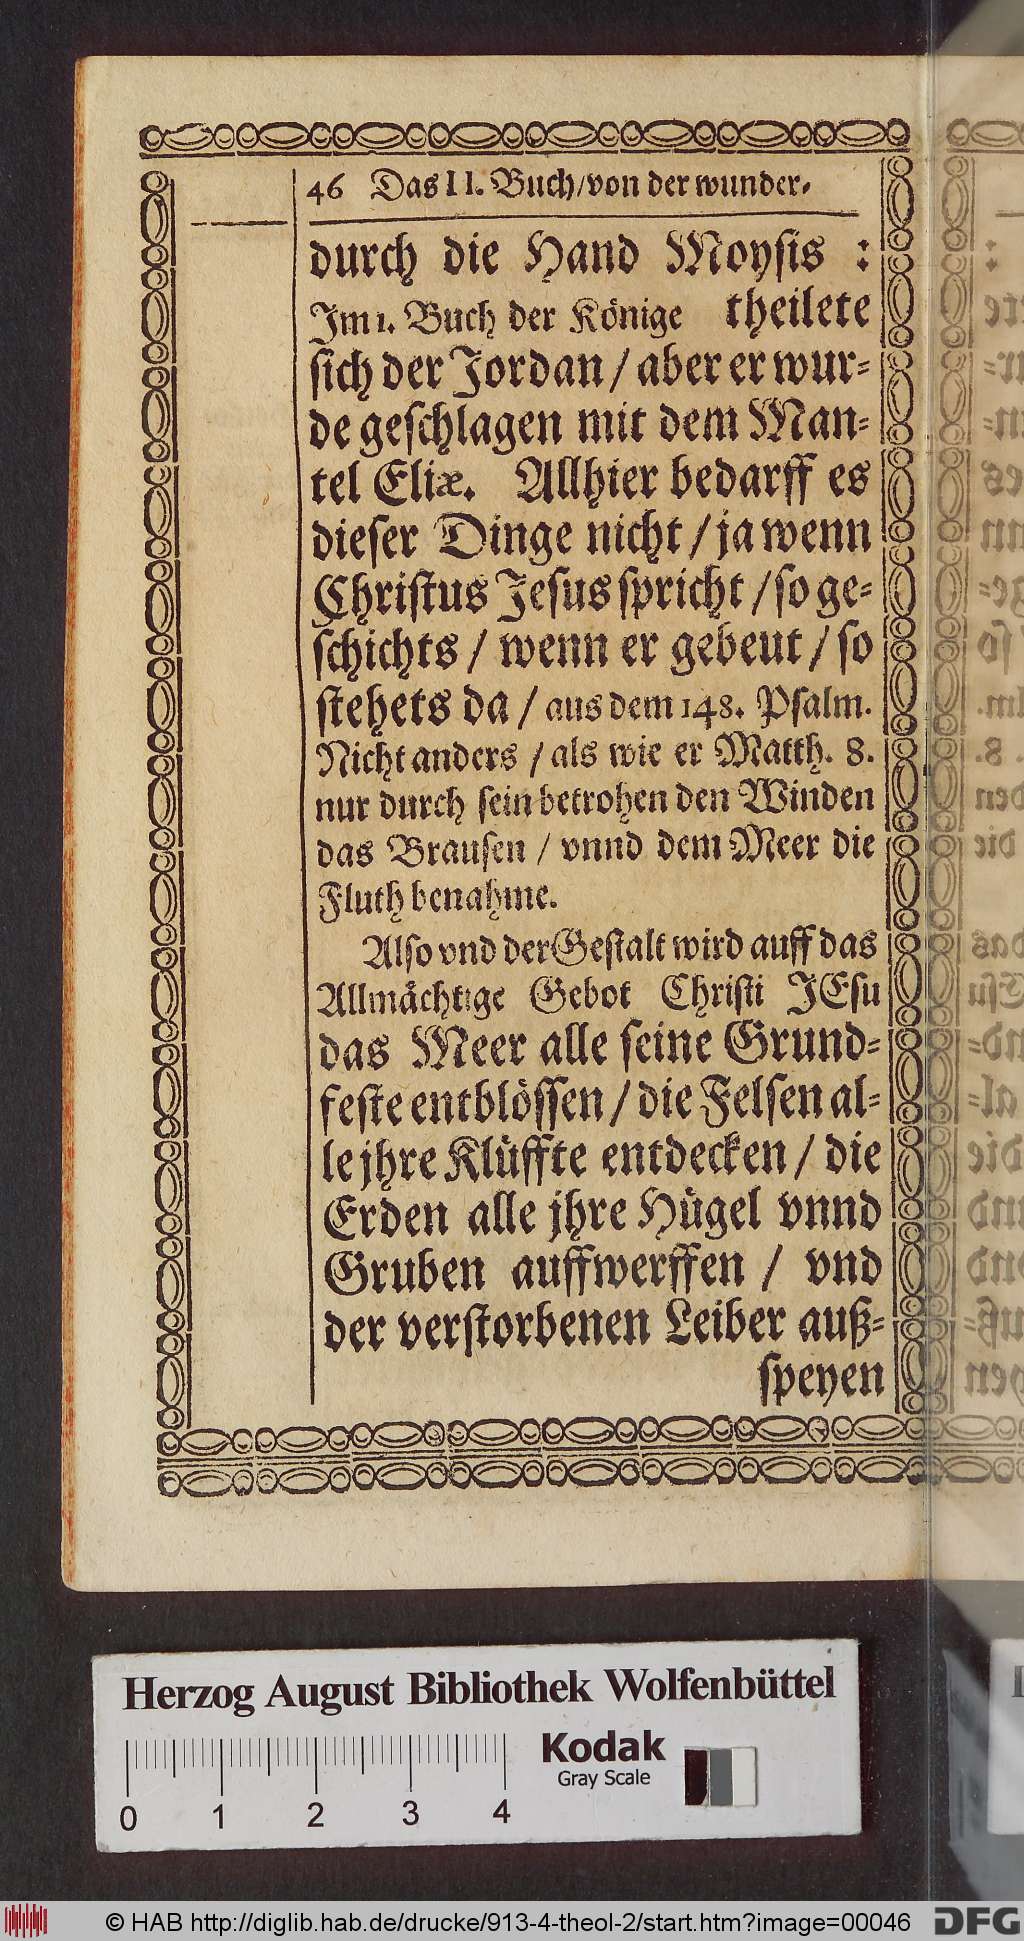 46 Das II. Buch/von der wunder⸗
durch die Hand Moysis :
Im 1. Buch der Könige theilete
sich der Jordan / aber er wur⸗
de geschlagen mit dem Man⸗
tel Eliæ. Allhier bedarff es
dieser Dinge nicht / ja wenn
Christus Jesus spricht / so ge⸗
schichts / wenn er gebeut / so
stehets da / aus dem 148. Psalm.
Nicht anders / als wie er Matth. 8.
nur durch sein betrohen den Winden
das Brausen / vnnd dem Meer die
Fluth benahme.
Also vnd der Gestalt wird auff das
Allmächtige Gebot Christi JEsu
das Meer alle seine Grund⸗
feste entblössen / die Felsen al⸗
le jhre Klüffte entdecken / die
Erden alle jhre Hügel vnnd
Gruben auffwerffen / vnd
der verstorbenen Leiber auß⸗
speyen
Herzog August Bibliothek Wolfenbüttel
Kodak
Gray Scale
0 1 2 3 4
© HAB http://diglib.hab.de/drucke/913-4-theol-2/start.htm?image=00046
DFG